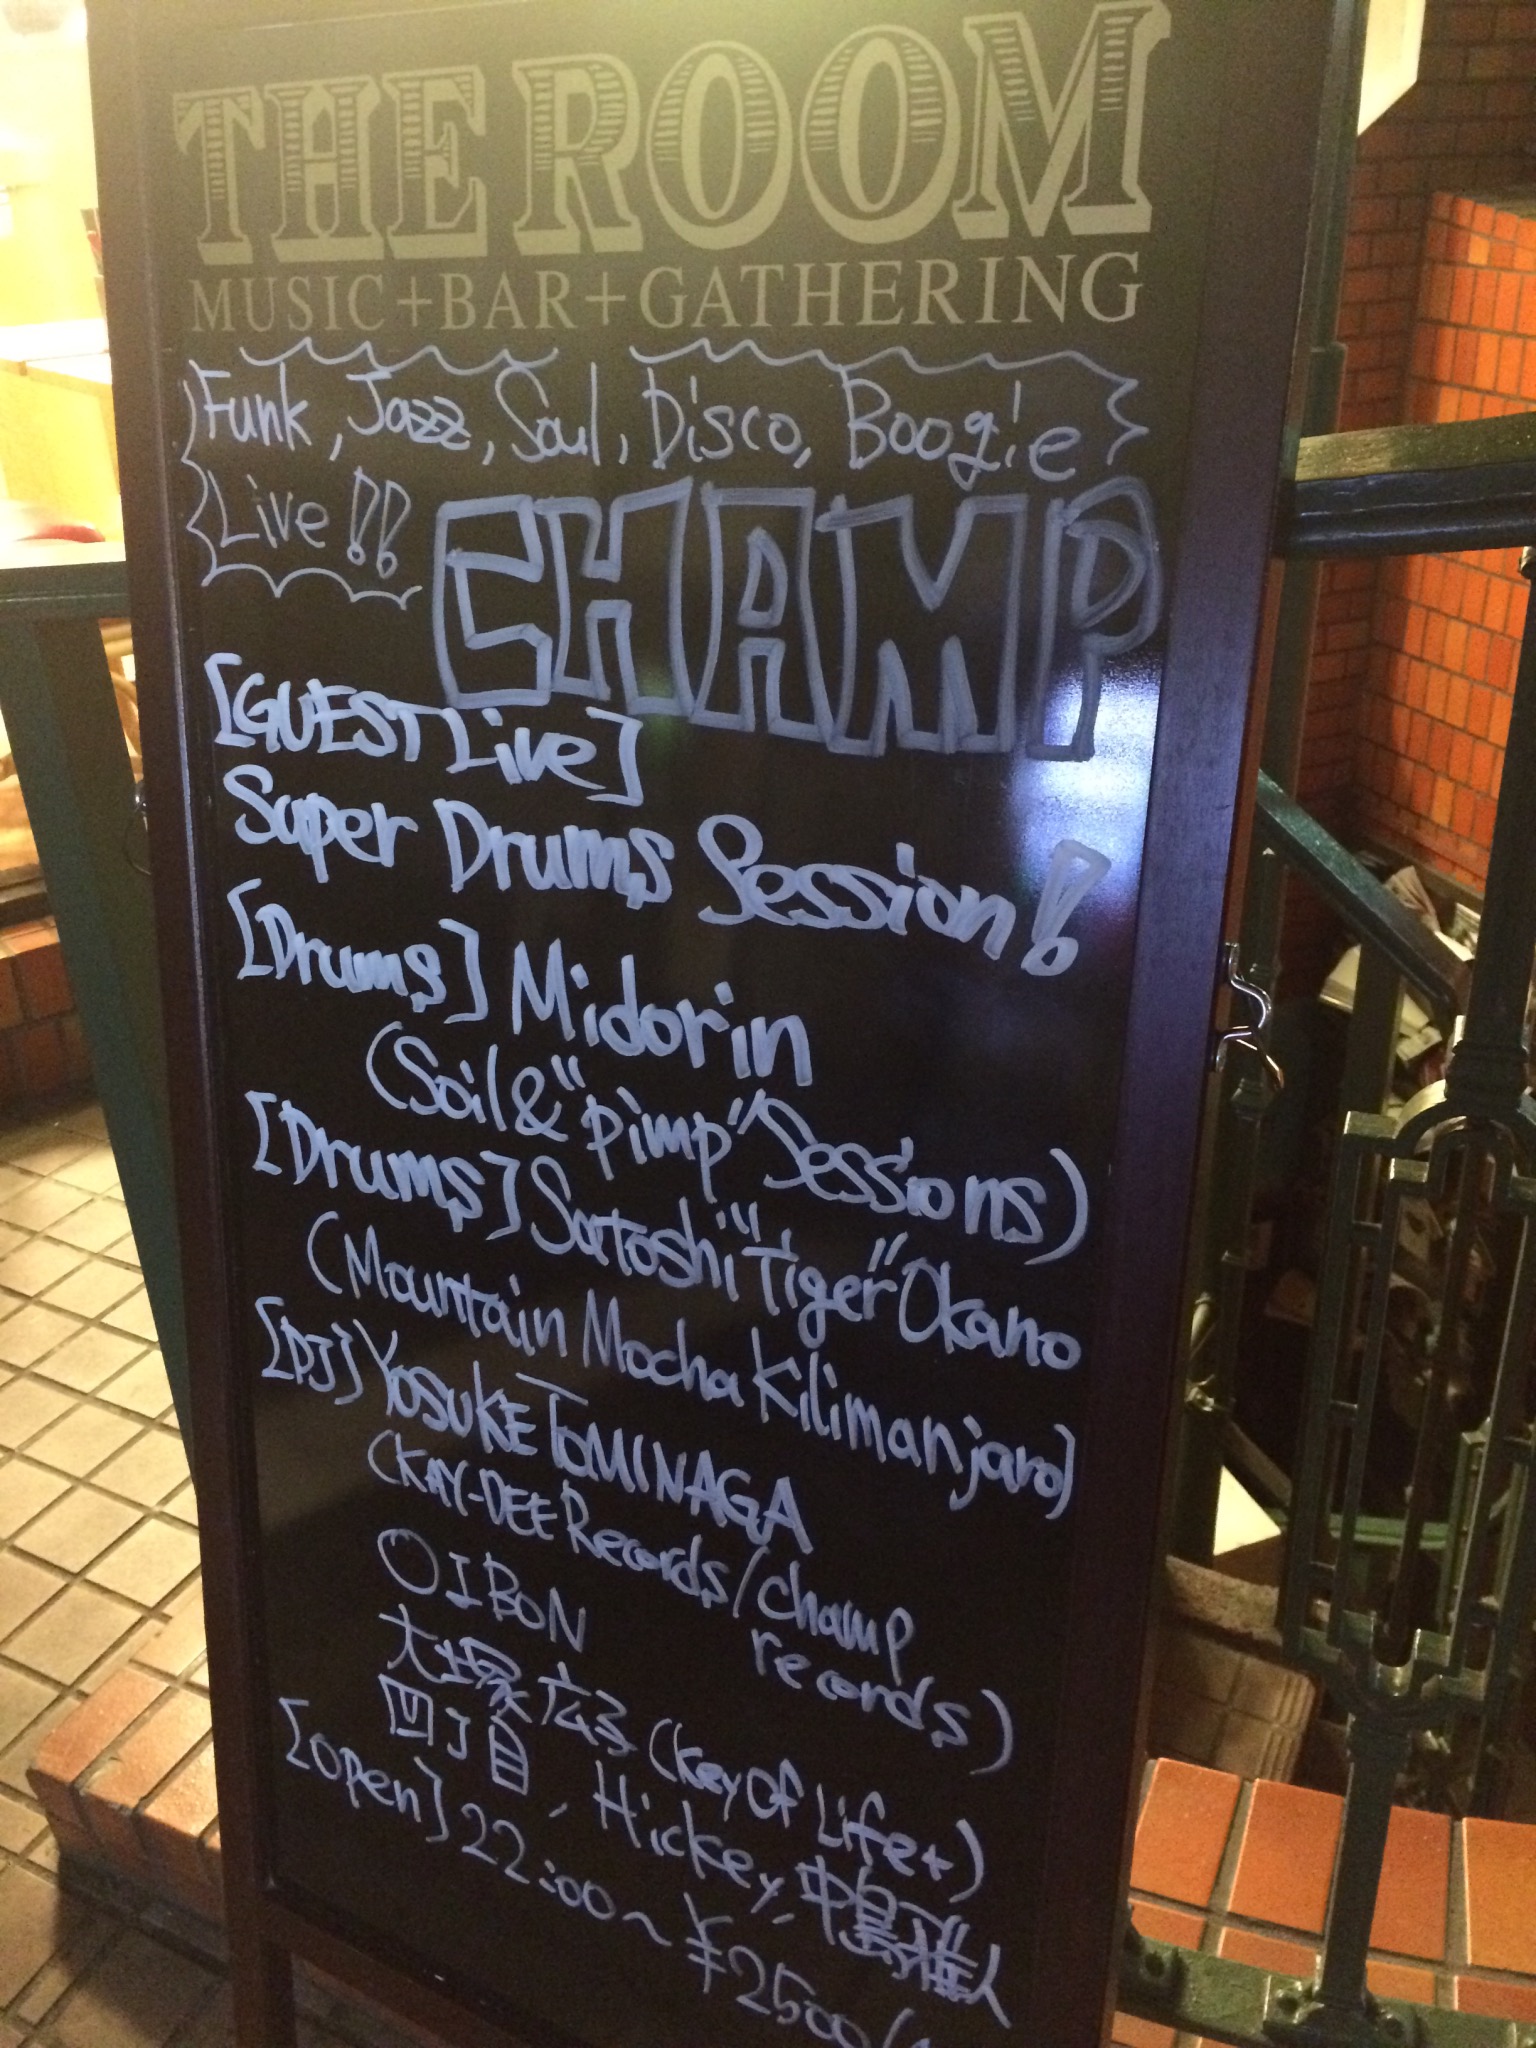 THE ROOM
MUSIC+BAR+GATHERING
Funk, Jazz, Soul, Disco, Boogie
Live!!
CHAMP
[GUEST Live]
Super Drums Session!
[Drums] Midorin
(Soil & "pimp" Sessions)
[Drums] Satoshi "Tiger" Okano
(Mountain Mocha Kilimanjaro)
[DJ] YOSUKE TOMINAGA
(KAY-DEE Records/champ
records)
OIBON
大塚広子 (Key Of Life+)
四丁目, Hickey, 中島雅人
[open] 22:00~ ¥2500